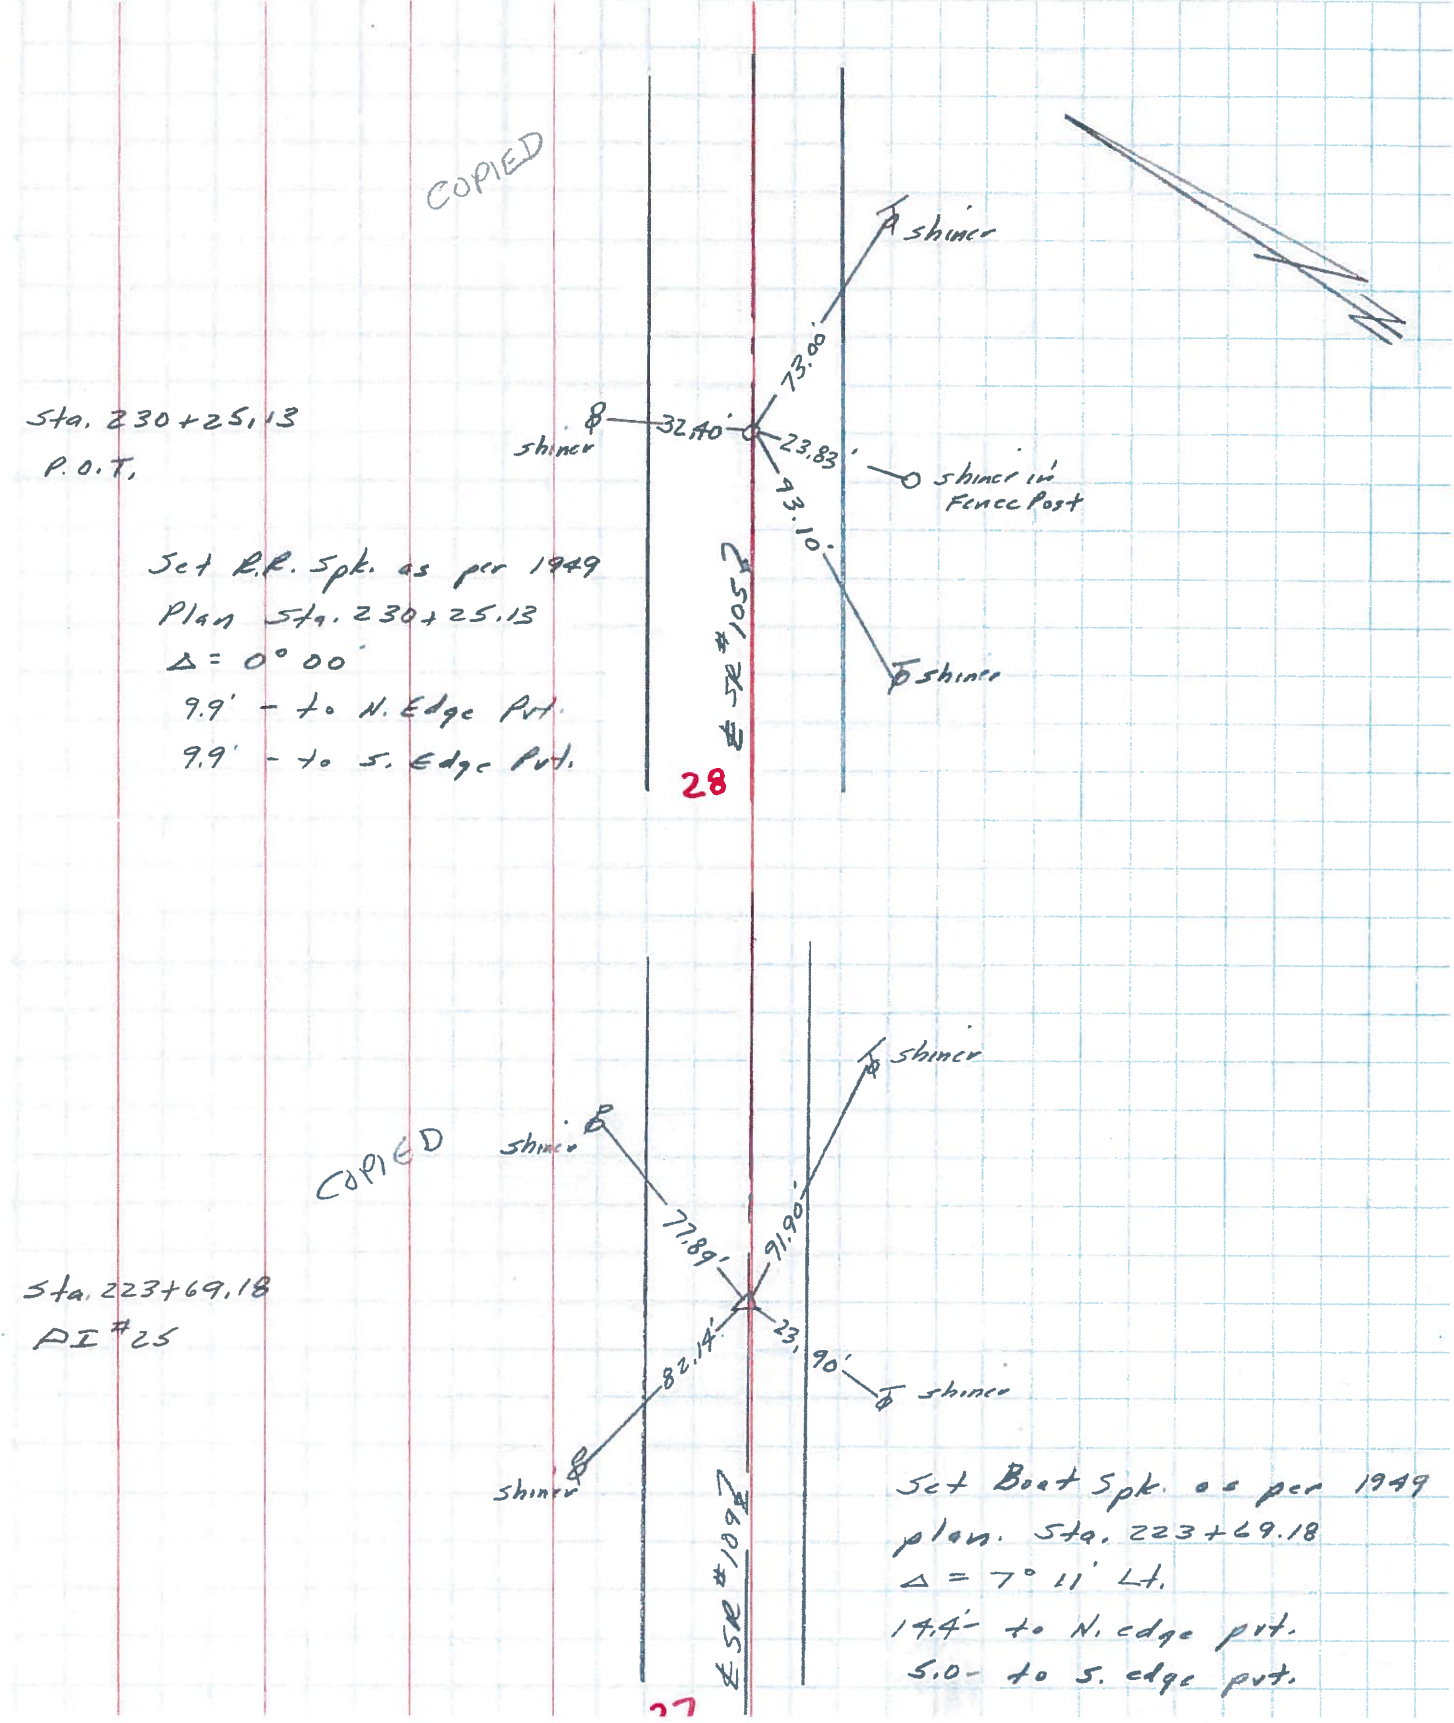 COPIED
shiner
73.00'
Sta. 230+25.13
P.O.T.
shiner
32.40'
23.83'
shiner in
Fence Post
93.10'
shiner
Set R.R. Spk. as per 1949
Plan Sta. 230+25.13
Δ = 0° 00'
9.9' - to N. Edge Pvt.
9.9' - to S. Edge Pvt.
℄ SR #105
28
N
shiner
shiner
COPIED
77.89'
91.90'
Sta. 223+69.18
PI #25
82.14'
23.90'
shiner
shiner
Set Boat Spk. as per 1949
plan. Sta. 223+69.18
Δ = 7° 11' Lt.
14.4'- to N. edge pvt.
5.0- to S. edge pvt.
℄ SR #109
27